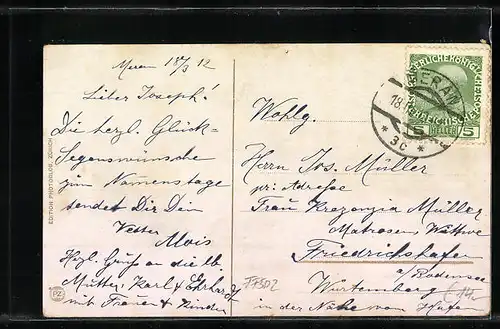 Meran 18/3 12
Lieber Joseph!
Die herzl. Glück-
Segenswünsche
zum Namenstage
sendet Dir Dein
Vetter
Alois
Hzl. Grüße an die lb.
Mutter, Karl & Erhard
mit Frauen & Kinder
EDITION PHOTOGLOB, ZÜRICH
PZ
Wohlg.
Herrn Jos. Müller
pr. Adresse
Frau Kreszenzia Müller
Matrosen Wittwe
Friedrichshafen
a/Bodensee
Würtemberg
in der Nähe vom Hafen
MERAN
18.
* 3c *
5 HELLER 5